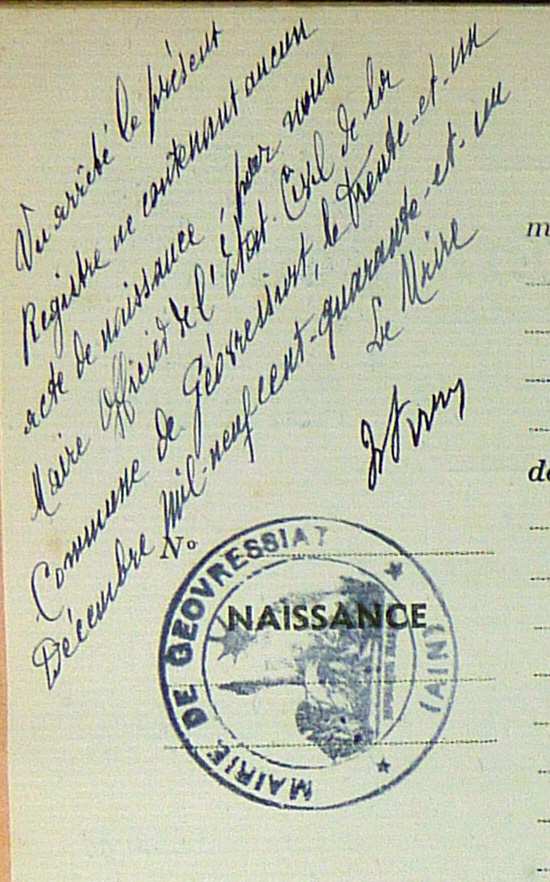 Vu arrêté le présent
Registre ne contenant aucun
acte de naissance, par nous
Maire Officier de l'Etat-Civil de la
Commune de Géovressiat, le trente-et-un
Décembre mil-neuf cent-quarante-et-un
Le Maire
m
No
de
NAISSANCE
MAIRIE DE GEOVRESSIAT
(AIN)